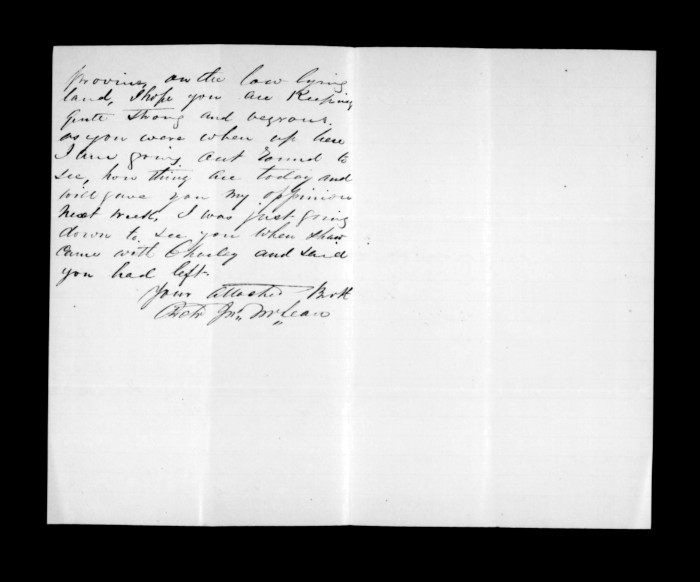 proving on the low lying
land, I hope you are Keeping
quite strong and vegrous.
as you were when up here
I am going out round to
see, how thing are today and
will gave you my oppinion
next week, I was just going
down to see you when Shaw
came with Charley and said
you had left.
Your attached Broth
Archd Jno McLean